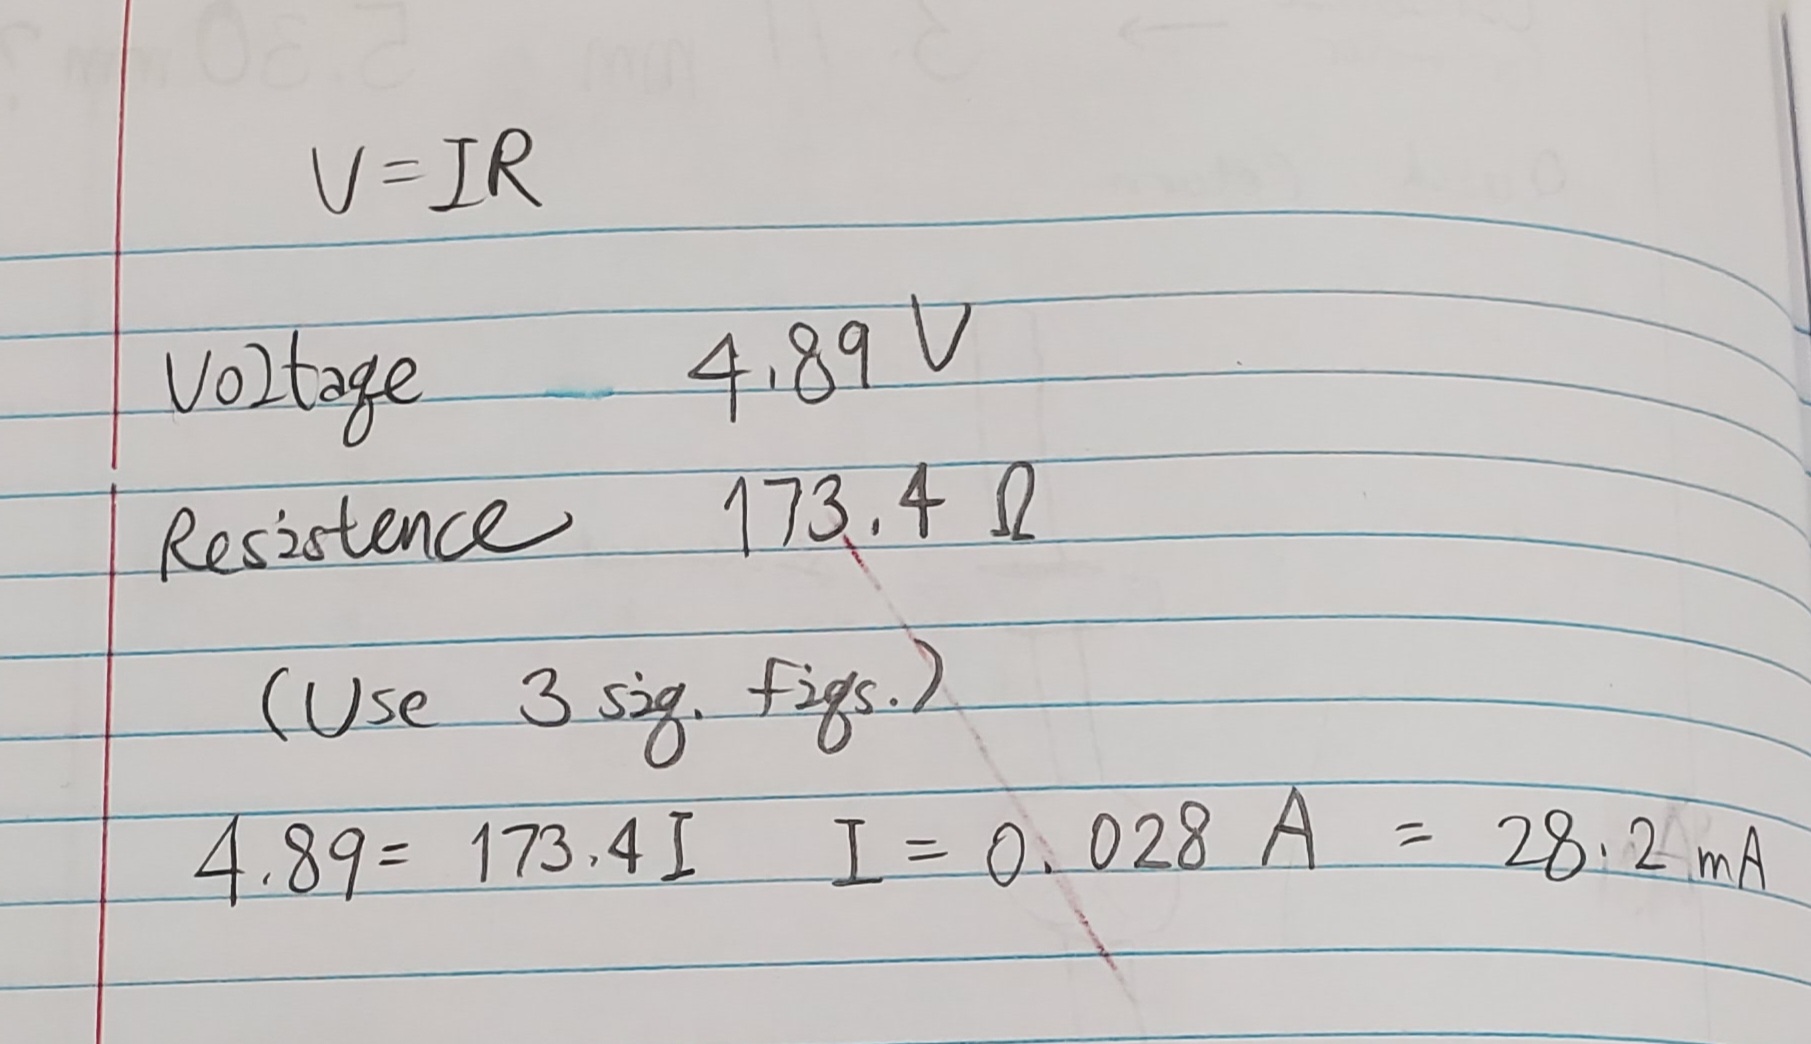 V=IR
Voltage 4.89 V
Resistence 173.4 Ω
(Use 3 sig. figs.)
4.89= 173.4 I I = 0.028 A = 28.2 mA